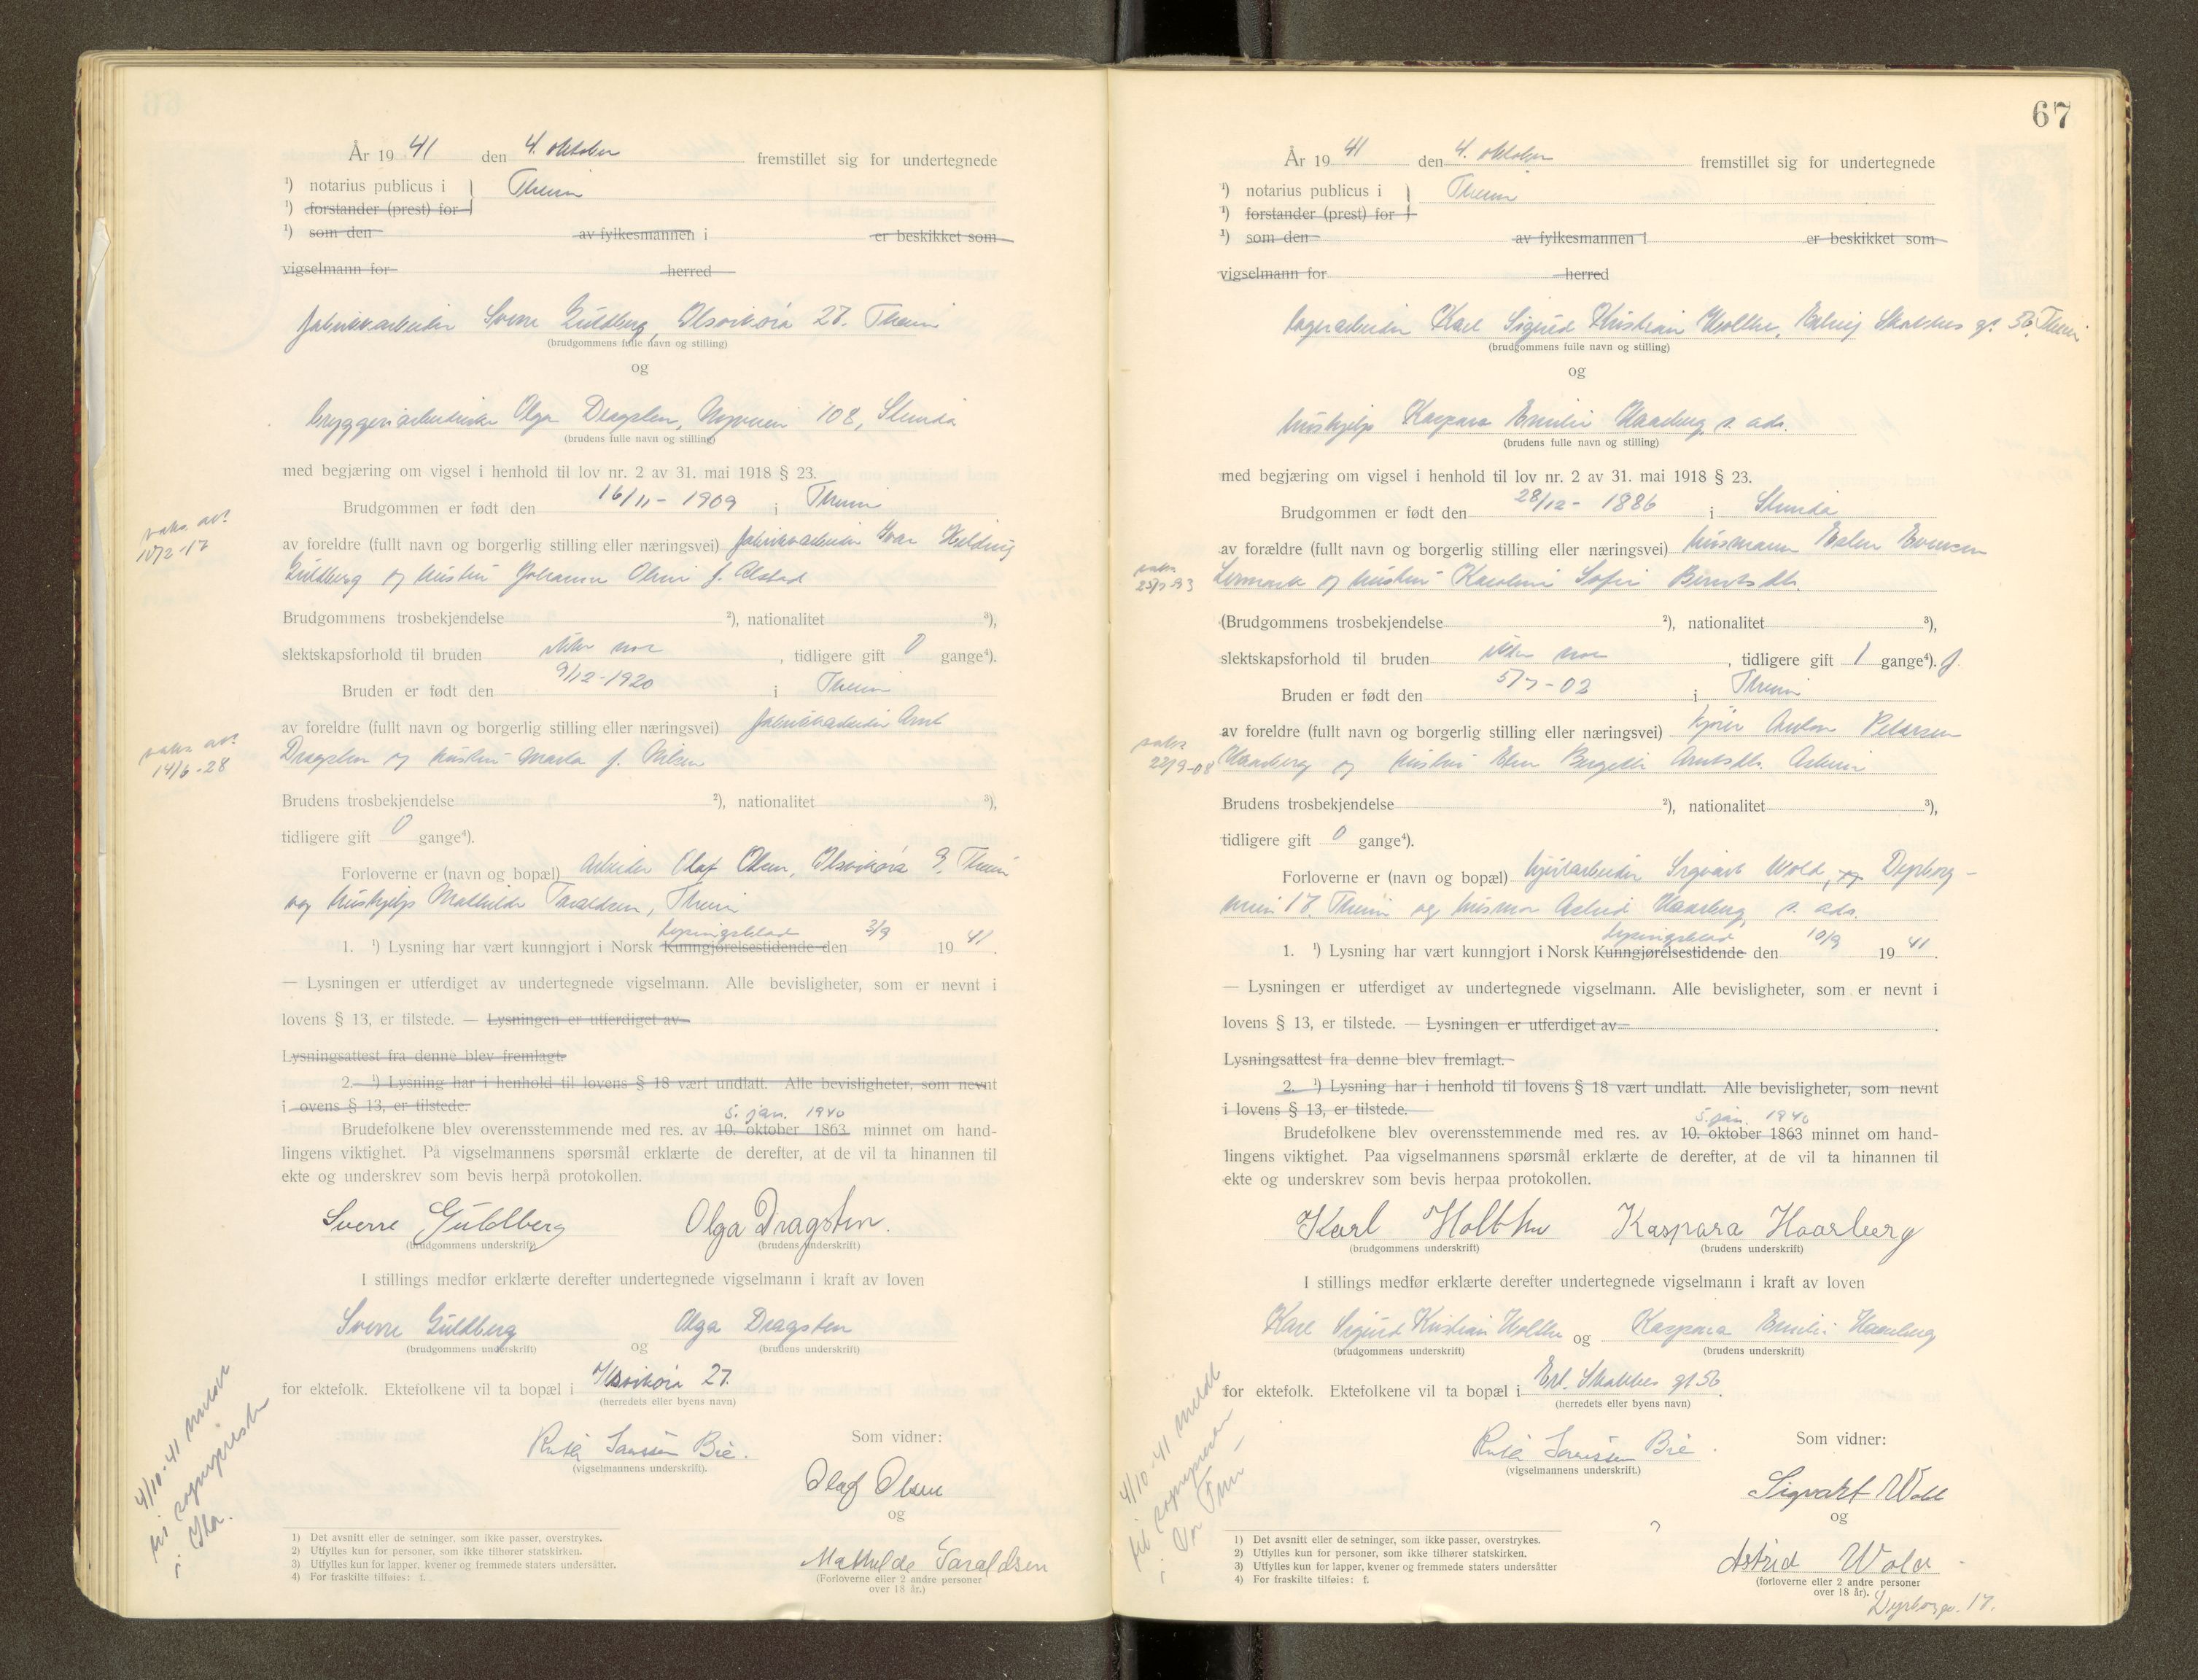 År 19 41 den 4. oktober fremstillet sig for undertegnede
¹) notarius publicus i } Theim
¹) forstander (prest) for
¹) som den av fylkesmannen i er beskikket som
vigselmann for herred
fabrikkarbeider Sverre Guldberg, Ilsvikøra 27. Theim
(brudgommens fulle navn og stilling)
og
bryggeriarbeiderske Olga Dragsten, Nyveien 108, Strinda
(brudens fulle navn og stilling)
med begjæring om vigsel i henhold til lov nr. 2 av 31. mai 1918 § 23.
Brudgommen er født den 16/11- 1909 i Theim
vaks. att
10/2-17
av foreldre (fullt navn og borgerlig stilling eller næringsvei) fabrikkarbeider Ivar Hilding
Guldberg og hustru Johanna Oline f. Alstad
Brudgommens trosbekjendelse ²), nationalitet ³),
slektskapsforhold til bruden ikke noe , tidligere gift 0 gange⁴).
Bruden er født den 9/12-1920 i Theim
av foreldre (fullt navn og borgerlig stilling eller næringsvei) fabrikkarbeider Arnt
vaks. att
14/6-28
Dragsten og hustru Marta f. Nilsen
Brudens trosbekjendelse ²), nationalitet ³),
tidligere gift 0 gange⁴).
Forloverne er (navn og bopæl) Arbeider Olaf Olsen, Ilsvikøra 9, Theim
og hushjelp Mathilde Taraldsen, Theim
lysingsblad
1. ¹) Lysning har vært kunngjort i Norsk Kunngjørelsestidende den 3/9 19 41.
— Lysningen er utferdiget av undertegnede vigselmann. Alle bevisligheter, som er nevnt i
lovens § 13, er tilstede. — Lysningen er utferdiget av
Lysningsattest fra denne blev fremlagt.
2. ¹) Lysning har i henhold til lovens § 18 vært undlatt. Alle bevisligheter, som nevnt
i lovens § 13, er tilstede.
5. jan. 1940
Brudefolkene blev overensstemmende med res. av 10. oktober 1863 minnet om hand-
lingens viktighet. På vigselmannens spørsmål erklærte de derefter, at de vil ta hinannen til
ekte og underskrev som bevis herpå protokollen.
Sverre Guldberg Olga Dragsten.
(brudgommens underskrift) (brudens underskrift)
I stillings medfør erklærte derefter undertegnede vigselmann i kraft av loven
Sverre Guldberg og Olga Dragsten
(brudgommens underskrift) (brudens underskrift)
for ektefolk. Ektefolkene vil ta bopæl i Ilsvikøra 27.
(herredets eller byens navn)
4/10-41 meldt
til sognepresten
i Ila.
Bie.
(vigselmannens underskrift).
Som vidner:
Olaf Olsen
og
Mathilde Taraldsen
(Forloverne eller 2 andre personer
over 18 år.)
1) Det avsnitt eller de setninger, som ikke passer, overstrykes.
2) Utfylles kun for personer, som ikke tilhører statskirken.
3) Utfylles kun for lapper, kvener og fremmede staters undersåtter.
4) For fraskilte tilføies: f.
67
År 19 41 den 4. oktober fremstillet sig for undertegnede
¹) notarius publicus i } Theim
¹) forstander (prest) for
¹) som den av fylkesmannen i er beskikket som
vigselmann for herred
lagerarbeider Karl Sigurd Kristian Holthe, Erling Skakkes gt. 56, Theim
(brudgommens fulle navn og stilling)
og
hushjelp Kaspara Emilie Haarberg, s. ads.
(brudens fulle navn og stilling)
med begjæring om vigsel i henhold til lov nr. 2 av 31. mai 1918 § 23.
Brudgommen er født den 28/12- 1886 i Strinda
av forældre (fullt navn og borgerlig stilling eller næringsvei) husmann Esten Evensen
vaks.
og hustru Karoline Sofie Berntsdtr.
(Brudgommens trosbekjendelse ²), nationalitet ³),
slektskapsforhold til bruden ikke noe , tidligere gift 1 gange⁴). f.
Bruden er født den 5/7-02 i Theim
av foreldre (fullt navn og borgerlig stilling eller næringsvei) kjører Anton Petersen
vaks.
22/9-08
Haarberg og hustru Elen Bergitte Arntsdtr.
Brudens trosbekjendelse ²), nationalitet ³),
tidligere gift 0 gange⁴).
Forloverne er (navn og bopæl) Sigvart Wold, Dyrborg-
veien 17. Theim og husmor Astrid Haarberg, s. ads.
lysingsblad
1. ¹) Lysning har vært kunngjort i Norsk Kunngjørelsestidende den 10/9 19 41.
— Lysningen er utferdiget av undertegnede vigselmann. Alle bevisligheter, som er nevnt i
lovens § 13, er tilstede. — Lysningen er utferdiget av .
Lysningsattest fra denne blev fremlagt.
2. ¹) Lysning har i henhold til lovens § 18 vært undlatt. Alle bevisligheter, som nevnt
i lovens § 13, er tilstede.
5. jan. 1940
Brudefolkene blev overensstemmende med res. av 10. oktober 1863 minnet om hand-
lingens viktighet. Paa vigselmannens spørsmål erklærte de derefter, at de vil ta hinannen til
ekte og underskrev som bevis herpaa protokollen.
Karl Holthe Kaspara Haarberg
(brudgommens underskrift) (brudens underskrift)
I stillings medfør erklærte derefter undertegnede vigselmann i kraft av loven
Karl Sigurd Kristian Holthe og Kaspara Emilie Haarberg
(brudgommens underskrift) (brudens underskrift)
for ektefolk. Ektefolkene vil ta bopæl i Erl. Skakkes gt 56.
(herredets eller byens navn)
4/10-41 meldt
til sognepresten
i Vor Frue
Bie.
(vigselmannens underskrift.)
Som vidner:
Sigvart Wold
og
Astrid Wold
(forloverne eller 2 andre personer
over 18 år).
Dyrborgv. 17.
1) Det avsnitt eller de setninger, som ikke passer, overstrykes.
2) Utfylles kun for personer, som ikke tilhører statskirken.
3) Utfylles kun for lapper, kvener og fremmede staters undersåtter
4) For fraskilte tilføies: f.